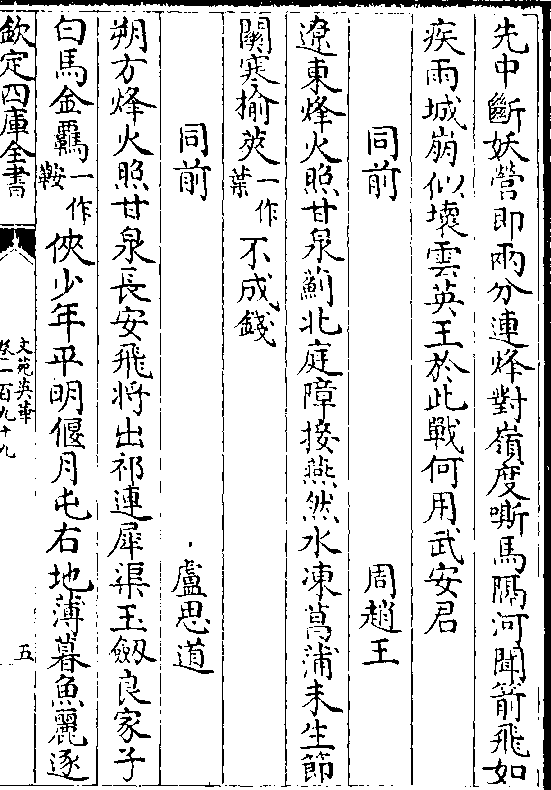 先中斷妖營即兩分連烽對嶺度嘶馬隔河聞箭飛如
疾雨城崩似壞雲英王於此戰何用武安君
同前 周趙王
遼東烽火照甘泉薊北庭障接燕然水凍菖蒲未生節
關寒榆莢一作葉不成錢
同前 盧思道
朔方烽火照甘泉長安飛將出祁連犀渠玉劔良家子
白馬金羈一作鞍俠少年平明偃月屯右地薄暮魚麗逐
欽定四庫全書 文苑英華 卷一百九十九 五